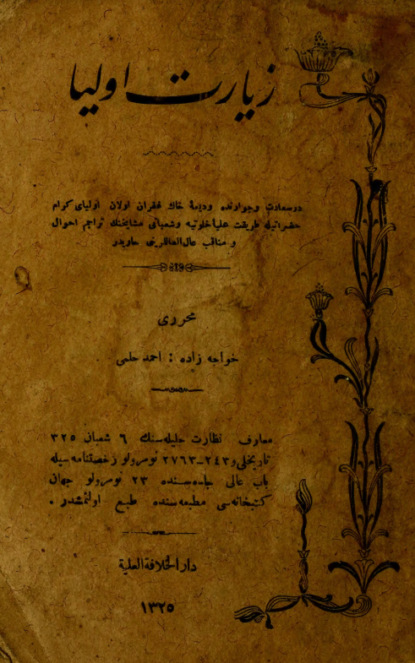 زيارت اوليا
درسعادت وجوارنده وديعهٔ خاك غفران اولان اولياى كرام
حضراتيله طريقت عليهٔ خلوتيه وشعبانى مشايخنك تراجم احوال
و مناقب عال‌العاللرينى حاويدر
محررى
خواجه زاده : احمد حلمى
معارف نظارت جليله‌سنك ٦ شعبان ٣٢٥
تاريخلى و ٢٤٣-٢٧٦٣ نومرولو رخصتنامه‌سيله
باب عالى جاده‌سنده ٢٣ نومرولو جهان
كتبخانه‌سى مطبعه‌سنده طبع اولنمشدر .
دار الخلافة العلية
١٣٢٥